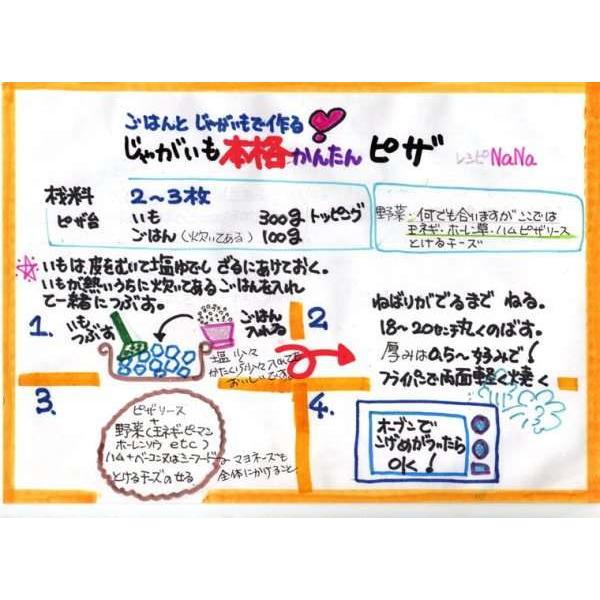 ごはんと じゃがいもで作る
じゃがいも本格かんたん ピザ
レシピ NaNa
材料 2〜3枚
ピザ台 いも 300g
ごはん(炊いてある) 100g
トッピング
野菜・何でも合いますがここでは
玉ネギ・ホーレン草・ハム ピザソース
とけるチーズ
いもは、皮をむいて塩ゆでし ざるにあけておく。
いもが熱いうちに炊いてあるごはんを入れ
て一緒につぶす。
1.
いも
つぶす
ごはん
入れる
塩 少々
かたくり少々入れても
おいしいです。
2
ねばりがでるまで ねる。
18〜20センチ丸くのばす。
厚みは0.5〜好みで!
フライパンで両面軽く焼く
3.
ピザソース
+
野菜(玉ネギ・ピーマン
ホーレンソウ etc)
ハム+ベーコン又はシーフード
とけるチーズのせる
マヨネーズも
全体にかけること。
4.
オーブンで
こげめがついたら
OK!